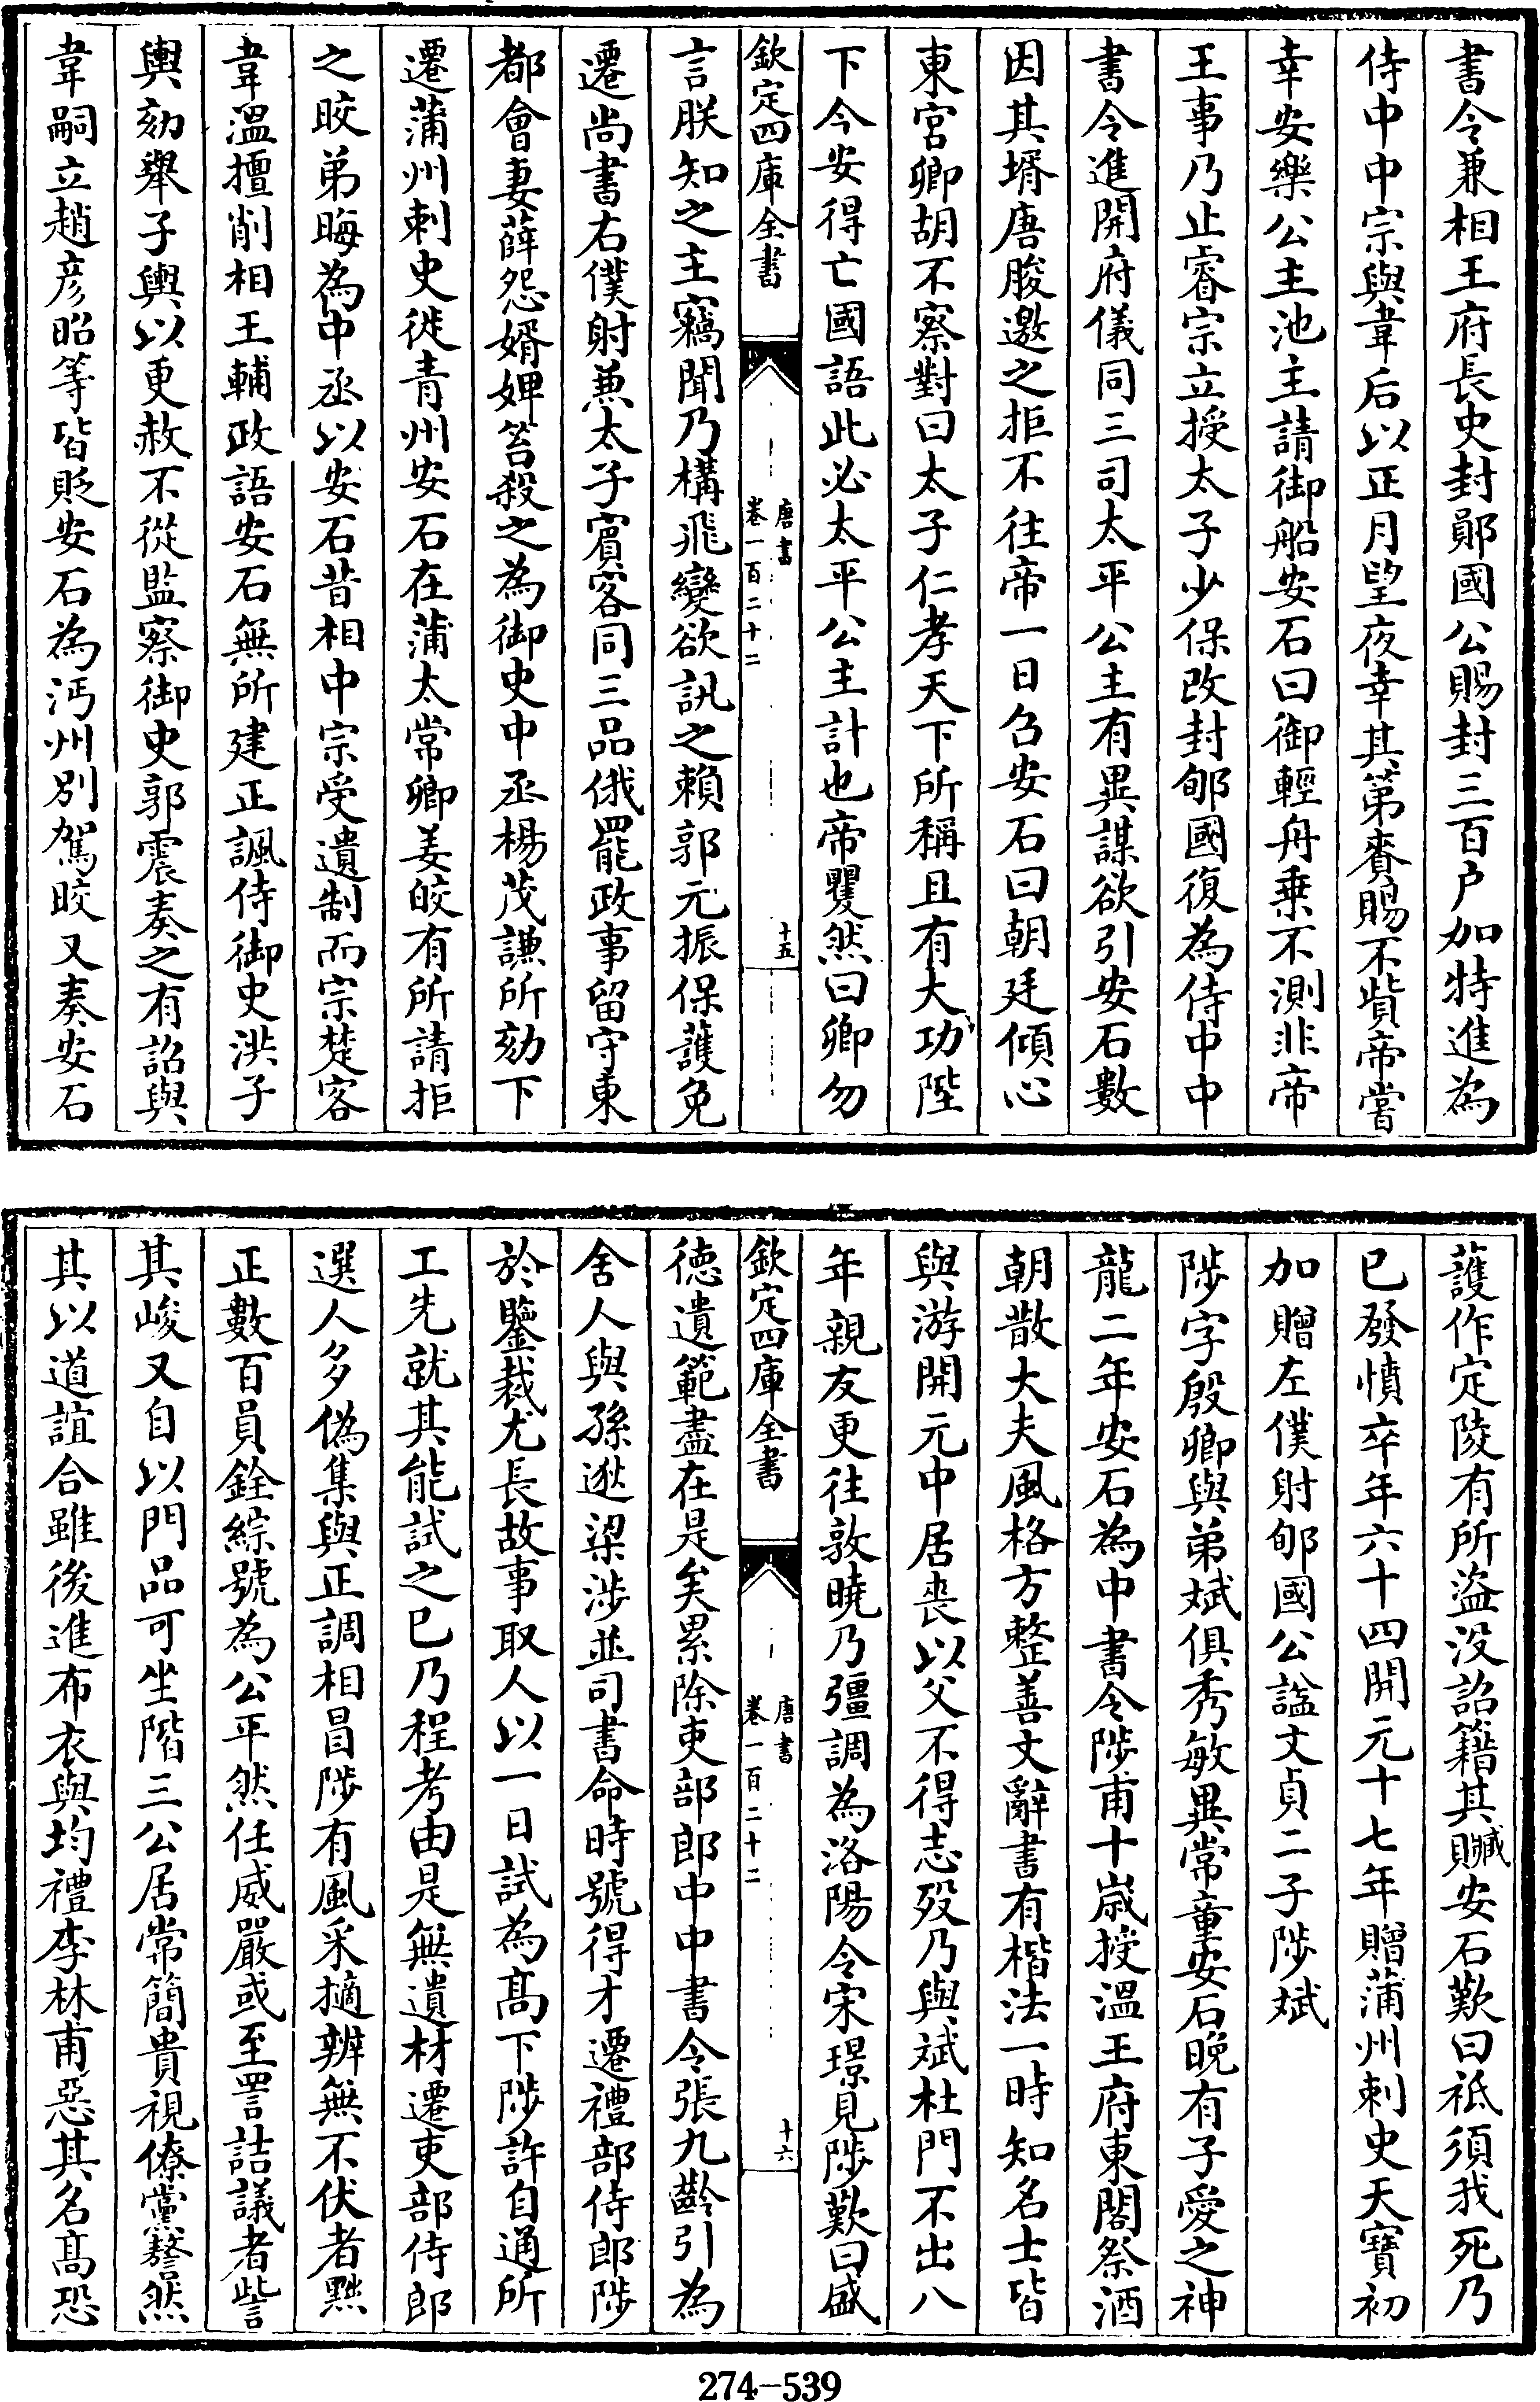 書令兼相王府長史封鄖國公賜封三百户加特進為
侍中中宗與韋后以正月望夜幸其第賚賜不貲帝嘗
幸安樂公主池主請御船安石曰御輕舟乗不測非帝
王事乃止睿宗立授太子少保改封郇國復為侍中中
書令進開府儀同三司太平公主有異謀欲引安石數
因其壻唐晙邀之拒不往帝一日召安石曰朝廷傾心
東宮卿胡不察對曰太子仁孝天下所稱且有大功陛
下今安得亡國語此必太平公主計也帝矍然曰卿勿
欽定四庫全書
唐書
卷一百二十二
十五
言朕知之主竊聞乃構飛變欲訊之賴郭元振保護免
遷尚書右僕射兼太子賓客同三品俄罷政事留守東
都會妻薛怨婿婢笞殺之為御史中丞楊茂謙所劾下
遷蒲州刺史徙青州安石在蒲太常卿姜皎有所請拒
之皎弟晦為中丞以安石昔相中宗受遺制而宗楚客
韋溫擅削相王輔政語安石無所建正諷侍御史洪子
輿劾舉子輿以更赦不從監察御史郭震奏之有詔與
韋嗣立趙彥昭等皆貶安石為沔州別駕皎又奏安石
護作定陵有所盗沒詔籍其贓安石歎曰祗須我死乃
已發憤卒年六十四開元十七年贈蒲州刺史天寶初
加贈左僕射郇國公諡文貞二子陟斌
陟字殷卿與弟斌俱秀敏異常童安石晚有子愛之神
龍二年安石為中書令陟甫十歲授溫王府東閤祭酒
朝散大夫風格方整善文辭書有楷法一時知名士皆
與游開元中居喪以父不得志歿乃與斌杜門不出八
年親友更往敦曉乃彊調為洛陽令宋璟見陟歎曰盛
欽定四庫全書
唐書
卷一百二十二
十六
德遺範盡在是矣累除吏部郎中中書令張九齡引為
舍人與孫逖梁涉並司書命時號得才遷禮部侍郎陟
於鑒裁尤長故事取人以一日試為高下陟許自通所
工先就其能試之已乃程考由是無遺材遷吏部侍郎
選人多偽集與正調相冒陟有風采擿辨無不伏者黜
正數百員銓綜號為公平然任威嚴或至詈詰議者訾
其峻又自以門品可坐階三公居常簡貴視僚黨謷然
其以道誼合雖後進布衣與均禮李林甫惡其名高恐
274-539